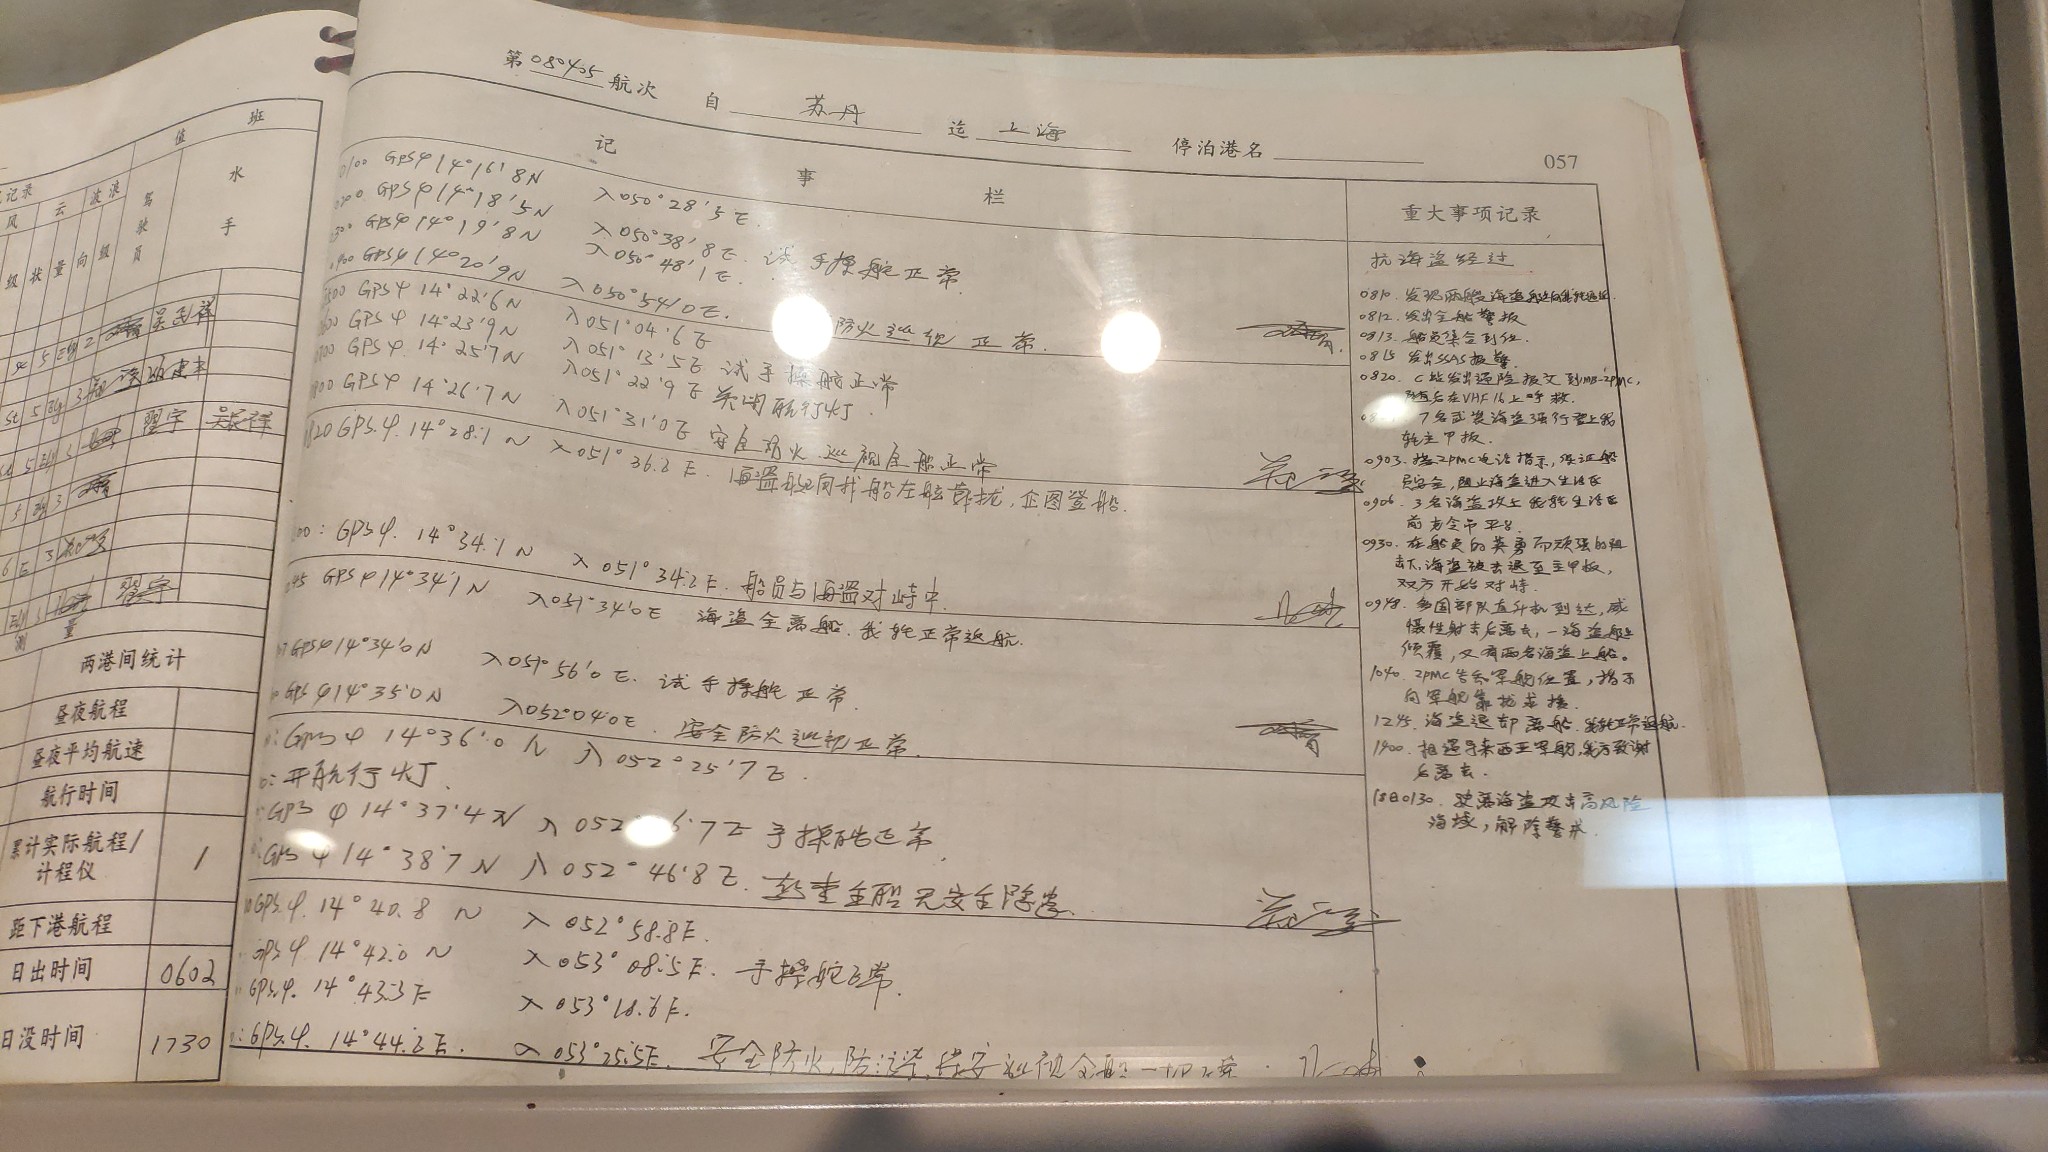 第 080405 航次 自 苏丹 迄 上海 停泊港名
057
值 班
记录
水手
驾驶员
风 云 波浪
级 状 量 向 级
吴长祥
翟宇
翟宇
量
两港间统计
昼夜航程
昼夜平均航速
航行时间
累计实际航程/
计程仪
距下港航程
日出时间 0602
日没时间 1730
记 事 栏
0100 GPSφ14°16'8N λ050°28'3E.
0200 GPSφ14°18'5N λ050°38'8E. 试手操舵正常.
0300 GPSφ14°19'8N λ050°48'1E.
0400 GPSφ14°20'9N λ050°54'0E. 防火巡视正常.
0500 GPSφ14°22'6N λ051°04'6E
0600 GPSφ14°23'9N λ051°13'5E 试手操舵正常
0700 GPSφ. 14°25'7N λ051°22'9E 关闭航行灯.
0800 GPSφ 14°26'7N λ051°31'0E 安全防火巡视全船正常
0820 GPS.φ. 14°28.1 N λ051°36.2 E. 海盗艇向我船左舷靠拢,企图登船.
00: GPSφ. 14°34.1N λ051°34.2E. 船员与海盗对峙中.
45 GPSφ14°34'1N λ051°34'0E 海盗全离船.我轮正常返航.
GPSφ14°34'0N λ051°56'0E. 试手操舵正常.
GPSφ14°35'0N λ052°04'0E. 安全防火巡视正常.
GPSφ 14°36'0N λ052°25'7E.
开航行灯.
GPSφ 14°37'4N λ052 6'7E 手操舵正常.
GPSφ 14°38'7N λ052°46'8E. 检查全船无安全隐患.
GPS.φ. 14°40.8 N λ052°58.8E.
GPSφ 14°42.0 N λ053°08.5E. 手操舵正常.
GPS.φ. 14°43.3E λ053°18.6E.
GPS.φ. 14°44.2E. λ053°25.5E. 安全防火,防 保安巡视全船一切正常.
重大事项记录
抗海盗经过
0810. 发现两艘海盗艇向我轮逼近
0812. 发出全船警报
0813. 船员集合到位.
0815 发出SSAS报警
0820. C站发出遇险报文到IMB-2PMC,
随后在VHF16上呼救.
7名武装海盗强行登上我
轮主甲板.
0903. 按2PMC电话指示,保证船
员安全,阻止海盗进入生活区
0906. 3名海盗攻上我轮生活区
前方会市平台.
0930. 在船员的英勇而顽强的阻
击下,海盗被击退至主甲板,
双方开始对峙.
0948. 多国部队直升机到达,威
慑性射击后离去,一海盗艇
倾覆,又有两名海盗上船。
1040. 2PMC告知军舰位置,指示
向军舰靠拢求援.
1245. 海盗退却离船.我轮正常返航.
1400. 相遇马来西亚军舰,我方致谢
后离去.
18日0130. 驶离海盗攻击高风险
海域,解除警戒.